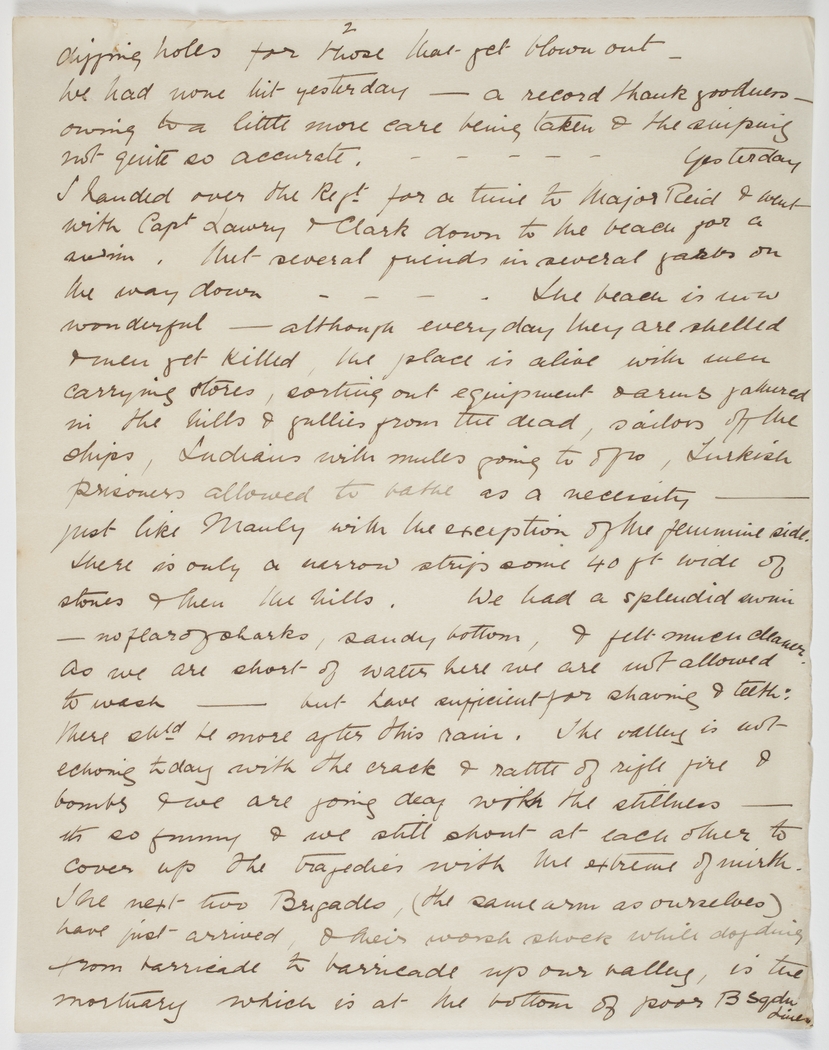 2
digging holes for those that get blown out _
We had none hit yesterday — a record thank goodness —
owing to a little more care being taken & the sniping
not quite so accurate. - - - - - Yesterday
I handed over the Regt. for a time to Major Reid & went
with Capt Lawry & Clark down to the beach for a
swim. Met several friends in several garbs on
the way down - - - . The beach is now
wonderful — although every day they are shelled
& men get killed, the place is alive with men
carrying stores, sorting out equipment & arms gathered
in the hills & gullies from the dead, sailors off the
ships, Indians with mules going to &fro, Turkish
prisoners allowed to bathe as a necessity ——
just like Manly with the exception of the feminine side.
There is only a narrow strip some 40 ft wide of
stones & then the hills. We had a splendid swim
— no fear of sharks, sandy bottom, & felt much cleaner.
As we are short of water here we are not allowed
to wash —— but have sufficient for shaving & teeth:
there shld be more after this rain. The valley is not
echoing today with the crack & rattle of rifle fire &
bombs & we are going deaf with the stillness —
its so funny & we still shout at each other to
cover up the tragedies with the extreme of mirth.
The next two Brigades, (the same arm as ourselves)
have just arrived, & their worst shock while dodging
from barricade to barricade up our valley, is the
mortuary which is at the bottom of poor B Sqdn
Lines.